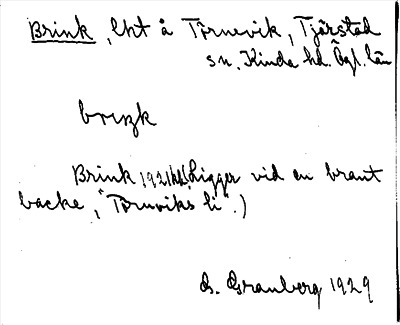 Brink, lht å Törnevik, Tjärstad
sn. Kinda hd. Ögl. län
brıŋk
Brink 1921 (Ligger vid en brant
backe, "Törneviks li".)
G. Granberg 1929